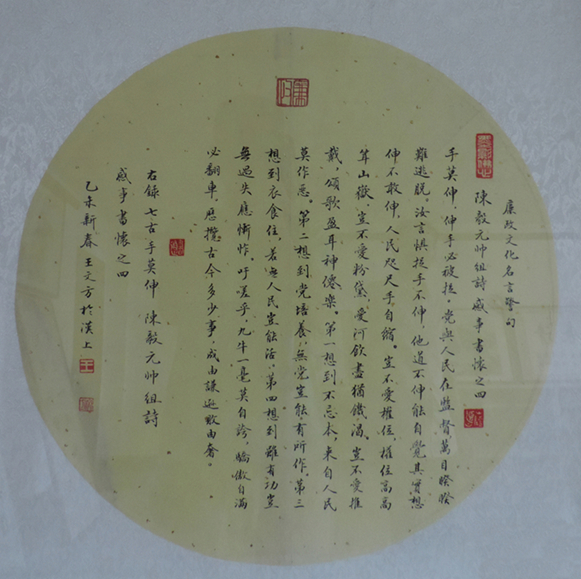 廉政文化名言警句
陳毅元帥組詩感事書懷之四
手莫伸，伸手必被捉。黨與人民在監督萬目睽睽
難逃脫。汝言懼捉手不伸，他道不伸能自覺其實想
伸不敢伸，人民咫尺手自縮。豈不愛權位，權位高高
聳山嶽，豈不愛粉黛，愛河飲盡猶饑渴，豈不愛推
戴，頌歌盈耳神僊樂。第一想到不忘本，來自人民
莫作惡。第二想到黨培養，無黨豈能有所作。第三
想到衣食住，若無人民豈能活，第四想到雖有功豈
無過失應慚怍。吁嗟乎，九牛一毫莫自誇，驕傲自滿
必翻車，歷覽古今多少事，成由謙遜敗由奢。
右錄七古手莫伸 陳毅元帥組詩
感事書懷之四
乙未新春王文方於漢上
王